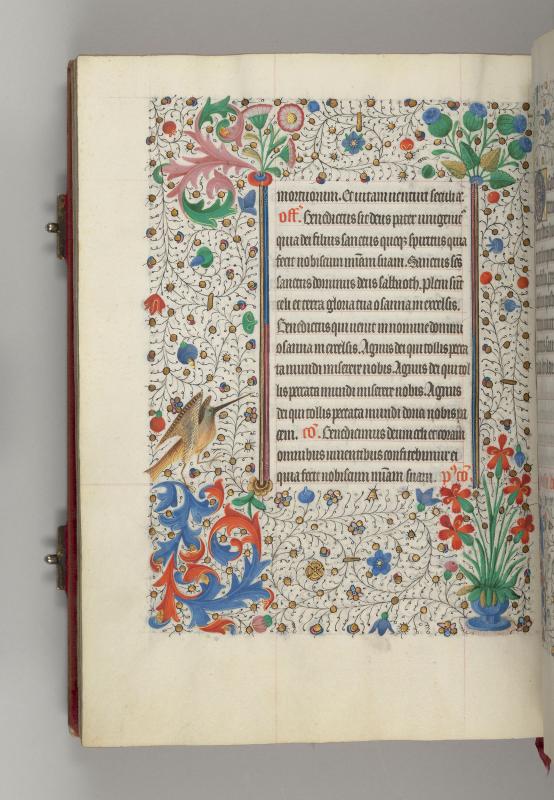 mortuorum. Et vitam venturi seculi a.
off. Benedictus sit deus pater unigenit9
quia dei filius sanctus quoq3 spiritus quia
fecit nobiscum miam suam. Sanctus scs
sanctus dominus deus sabaoth. Pleni sut
celi et terra gloria tua osanna in excelsis.
Benedictus qui venit in nomine domini
osanna in excelsis. Agnus dei qui tollis pecca
ta mundi miserere nobis. Agnus dei qui tol
lis peccata mundi miserere nobis. Agnus
dei qui tollis peccata mundi dona nobis pa
cem. co. Benedicimus deum celi et coram
omnibus viventibus confitebimur ei
quia fecit nobiscum miam suam. p9 co.